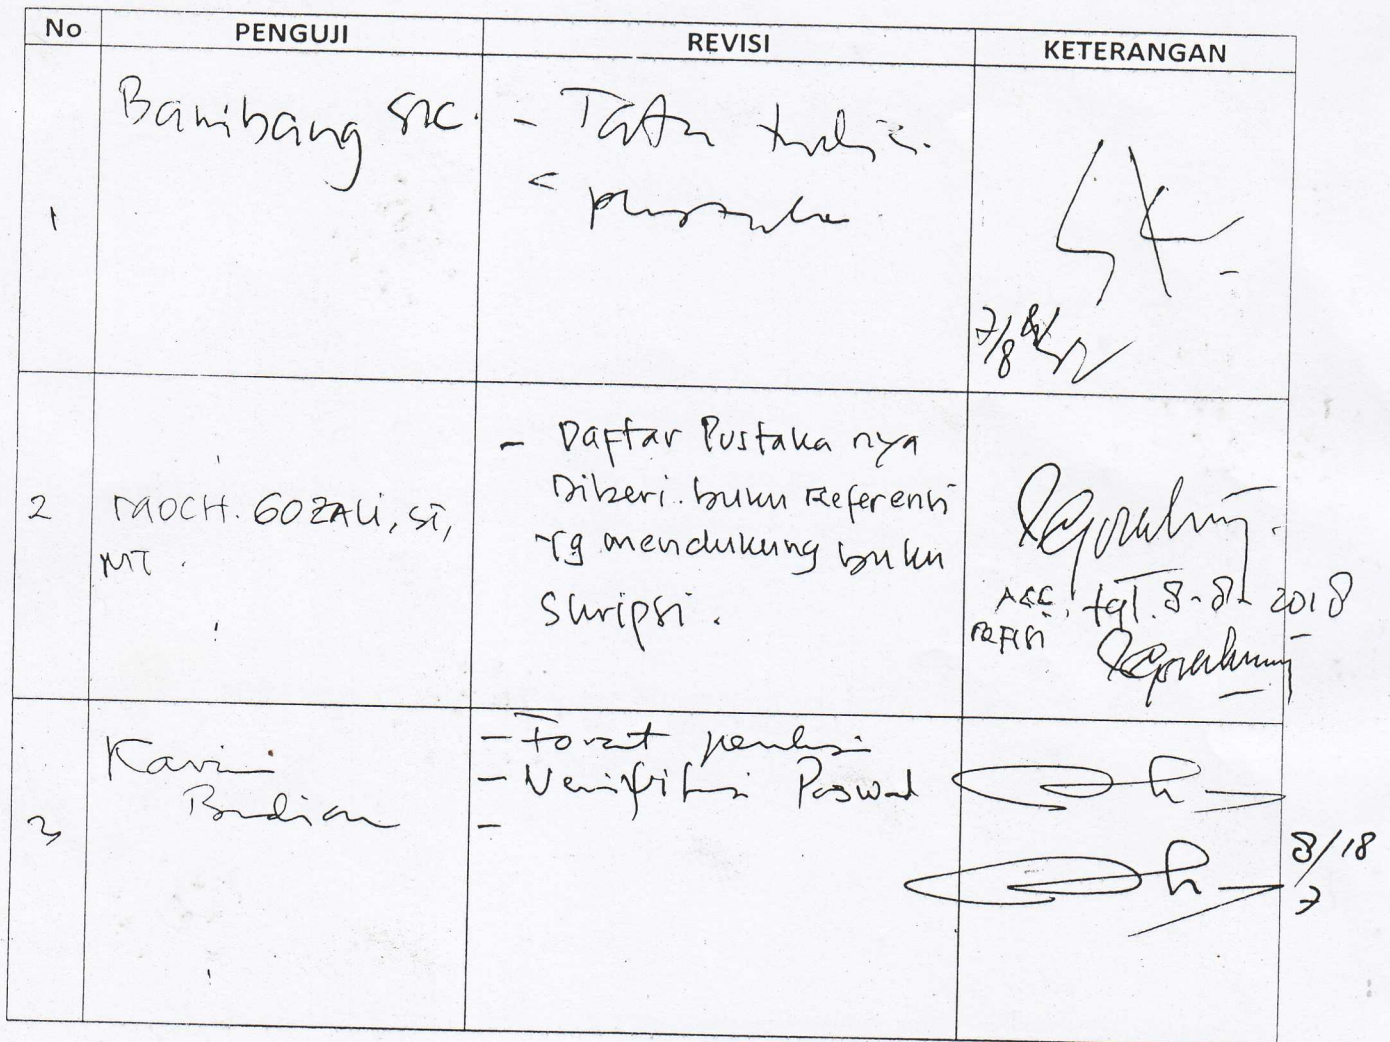 No PENGUJI REVISI KETERANGAN
1
Bambang
- Tata tulis.
- pustaka
7/8
2
MOCH. GOZALI, ST,
MT.
- Daftar Pustaka nya
Diberi buku Referensi
yg mendukung buku
Skripsi.
ACC tgl. 8-8-2018
3
Karmi
Budian
- Format penulisan
- Verifikasi Password
-
8/18
7